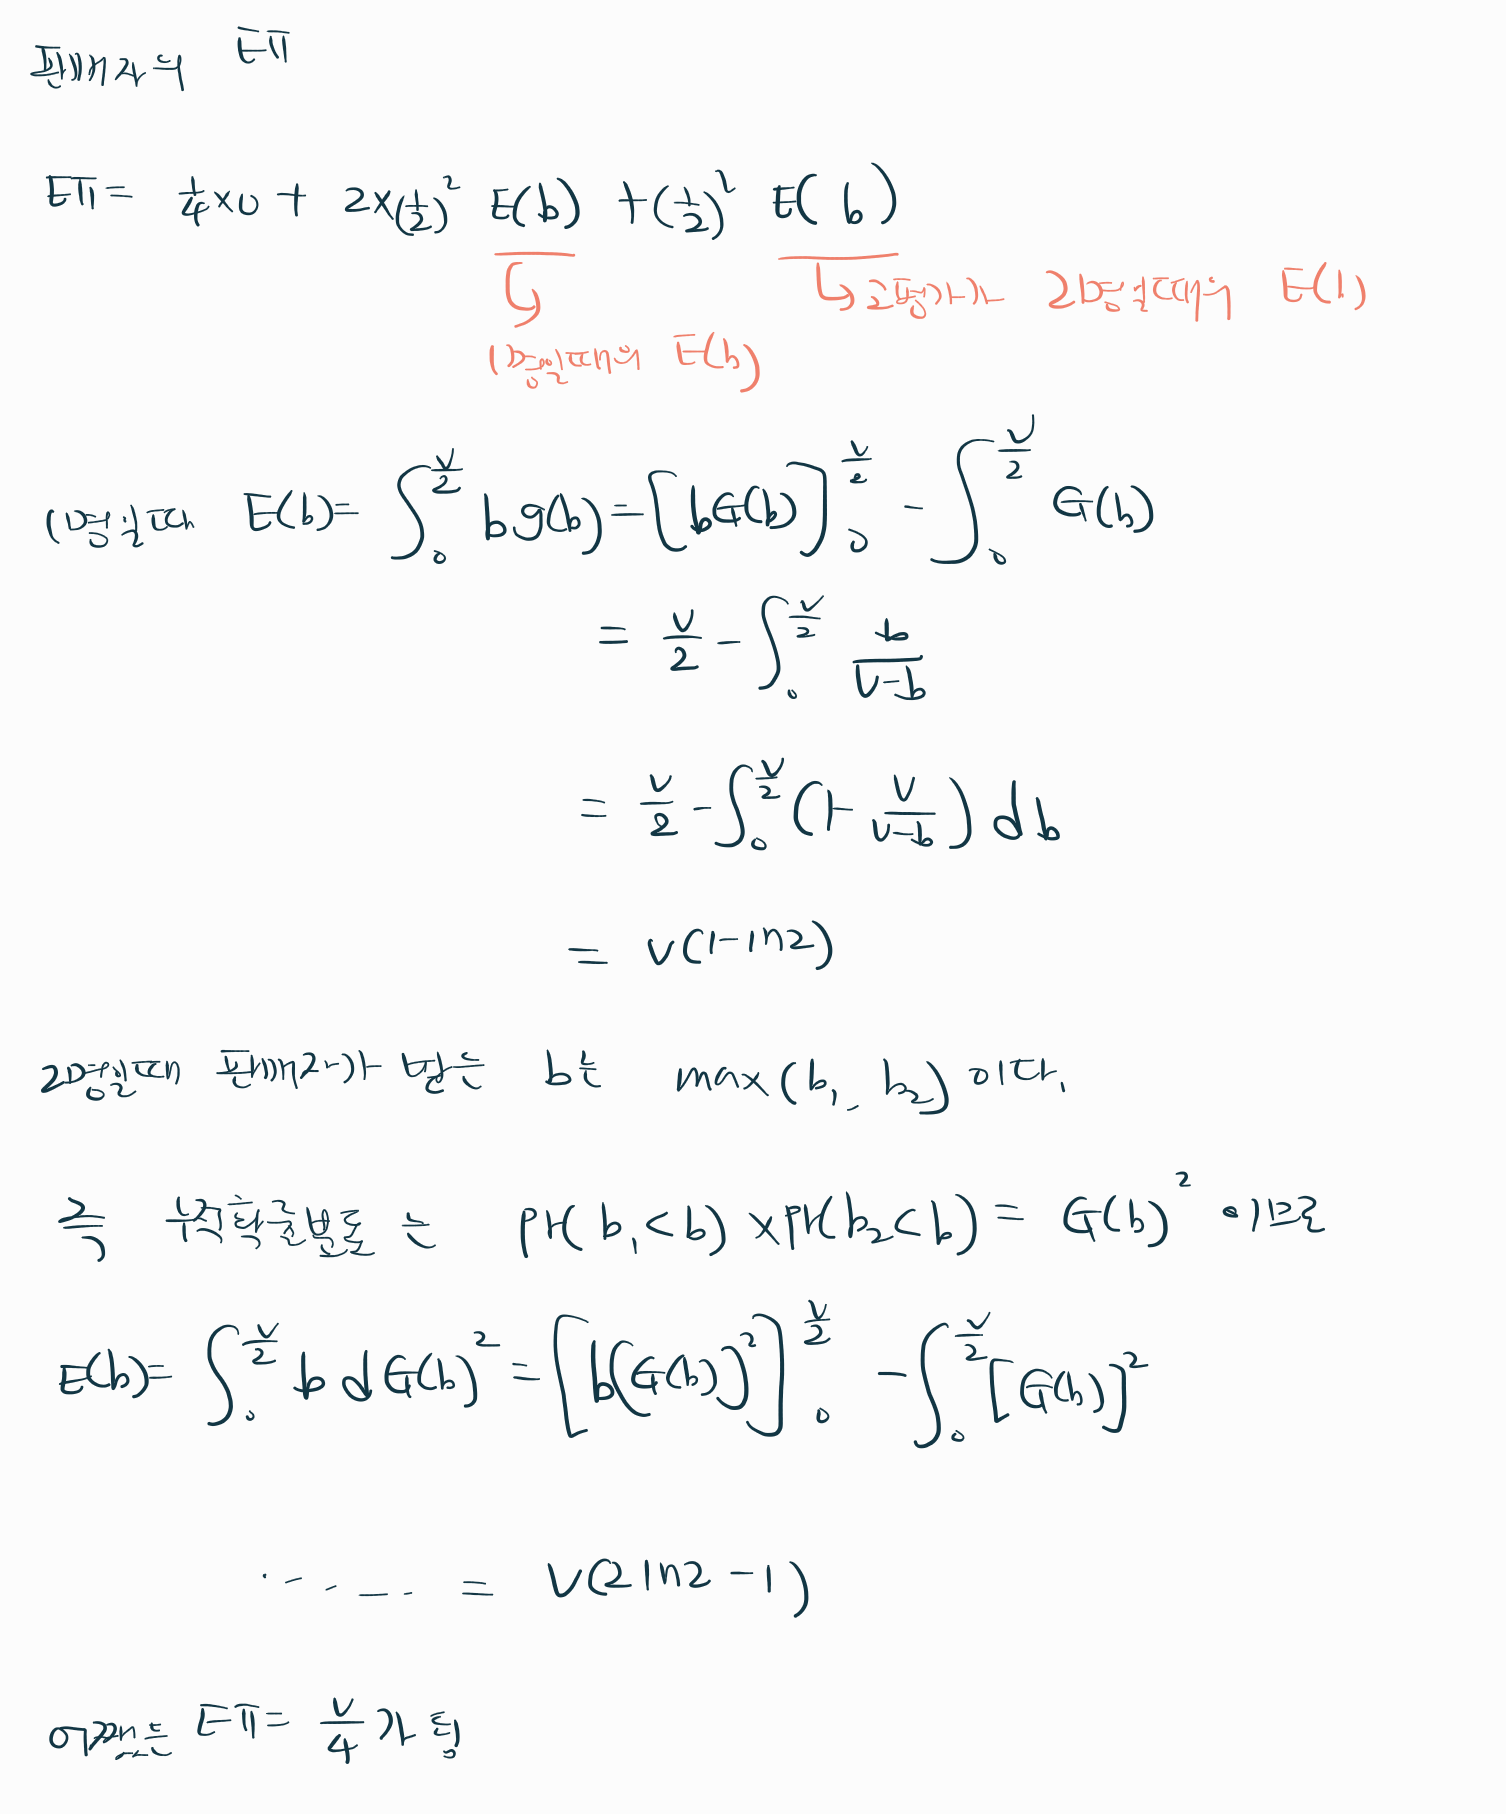 판매자의 Eπ
Eπ = 1/4 × 0 + 2×(1/2)² E(b) + (1/2)² E(b)
↳ 고평가가 2명일때의 E(b)
1명일때의 E(b)
1명일때 E(b) = ∫₀^(v/2) b g(b) = [bG(b)]₀^(v/2) - ∫₀^(v/2) G(b)
= v/2 - ∫₀^(v/2) b/(v-b)
= v/2 - ∫₀^(v/2) (1 - v/(v-b)) db
= v(1-ln2)
2명일때 판매자가 받는 b는 max(b₁, b₂) 이다.
즉 누적확률분포는 Pr(b₁<b) × Pr(b₂<b) = G(b)² 이므로
E(b) = ∫₀^(v/2) b dG(b)² = [b(G(b))²]₀^(v/2) - ∫₀^(v/2) [G(b)]²
...... = v(2ln2-1)
어쨌든 Eπ = v/4 가 됨